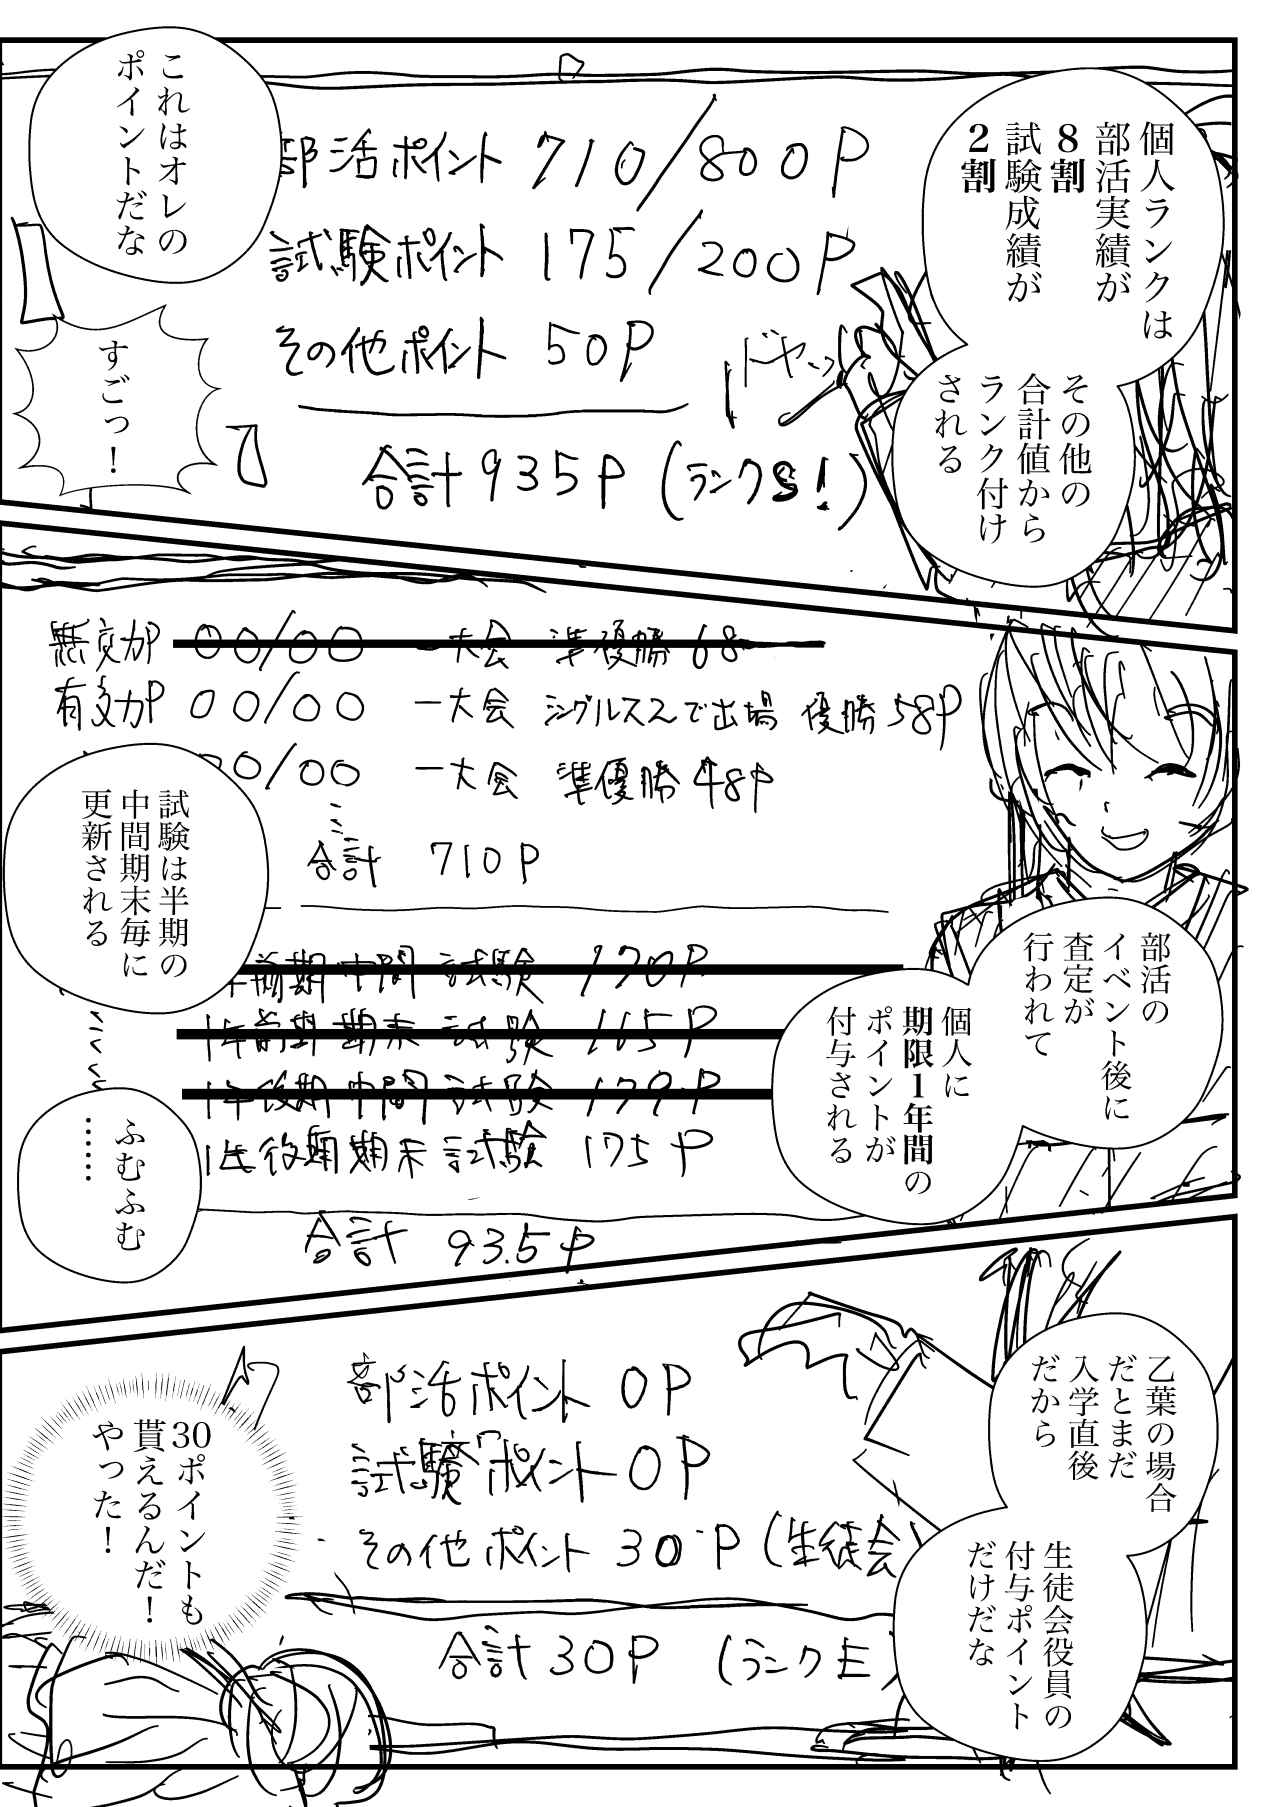 個人ランクは
部活実績が
8割
試験成績が
2割
その他の
合計値から
ランク付け
される
これはオレの
ポイントだな
部活ポイント 710/800P
試験ポイント 175/200P
その他ポイント 50P
合計 935P (ランクS!)
ドヤッ
すごっ!
無効P 00/00 一大会 準優勝 68
有効P 00/00 一大会 シングルス2で出場 優勝 58P
00/00 一大会 準優勝 48P
合計 710P
部活の
イベント後に
査定が
行われて
個人に
期限1年間の
ポイントが
付与される
試験は半期の
中間期末毎に
更新される
前期 中間 試験 170P
1年前期 期末 試験 165P
1年後期 中間 試験 179P
1年後期 期末 試験 175P
合計 935P
ふむふむ
……
乙葉の場合
だとまだ
入学直後
だから
生徒会役員の
付与ポイント
だけだな
部活ポイント 0P
試験ポイント 0P
その他ポイント 30P (生徒会)
合計 30P (ランクE)
30ポイントも
貰えるんだ!
やった!